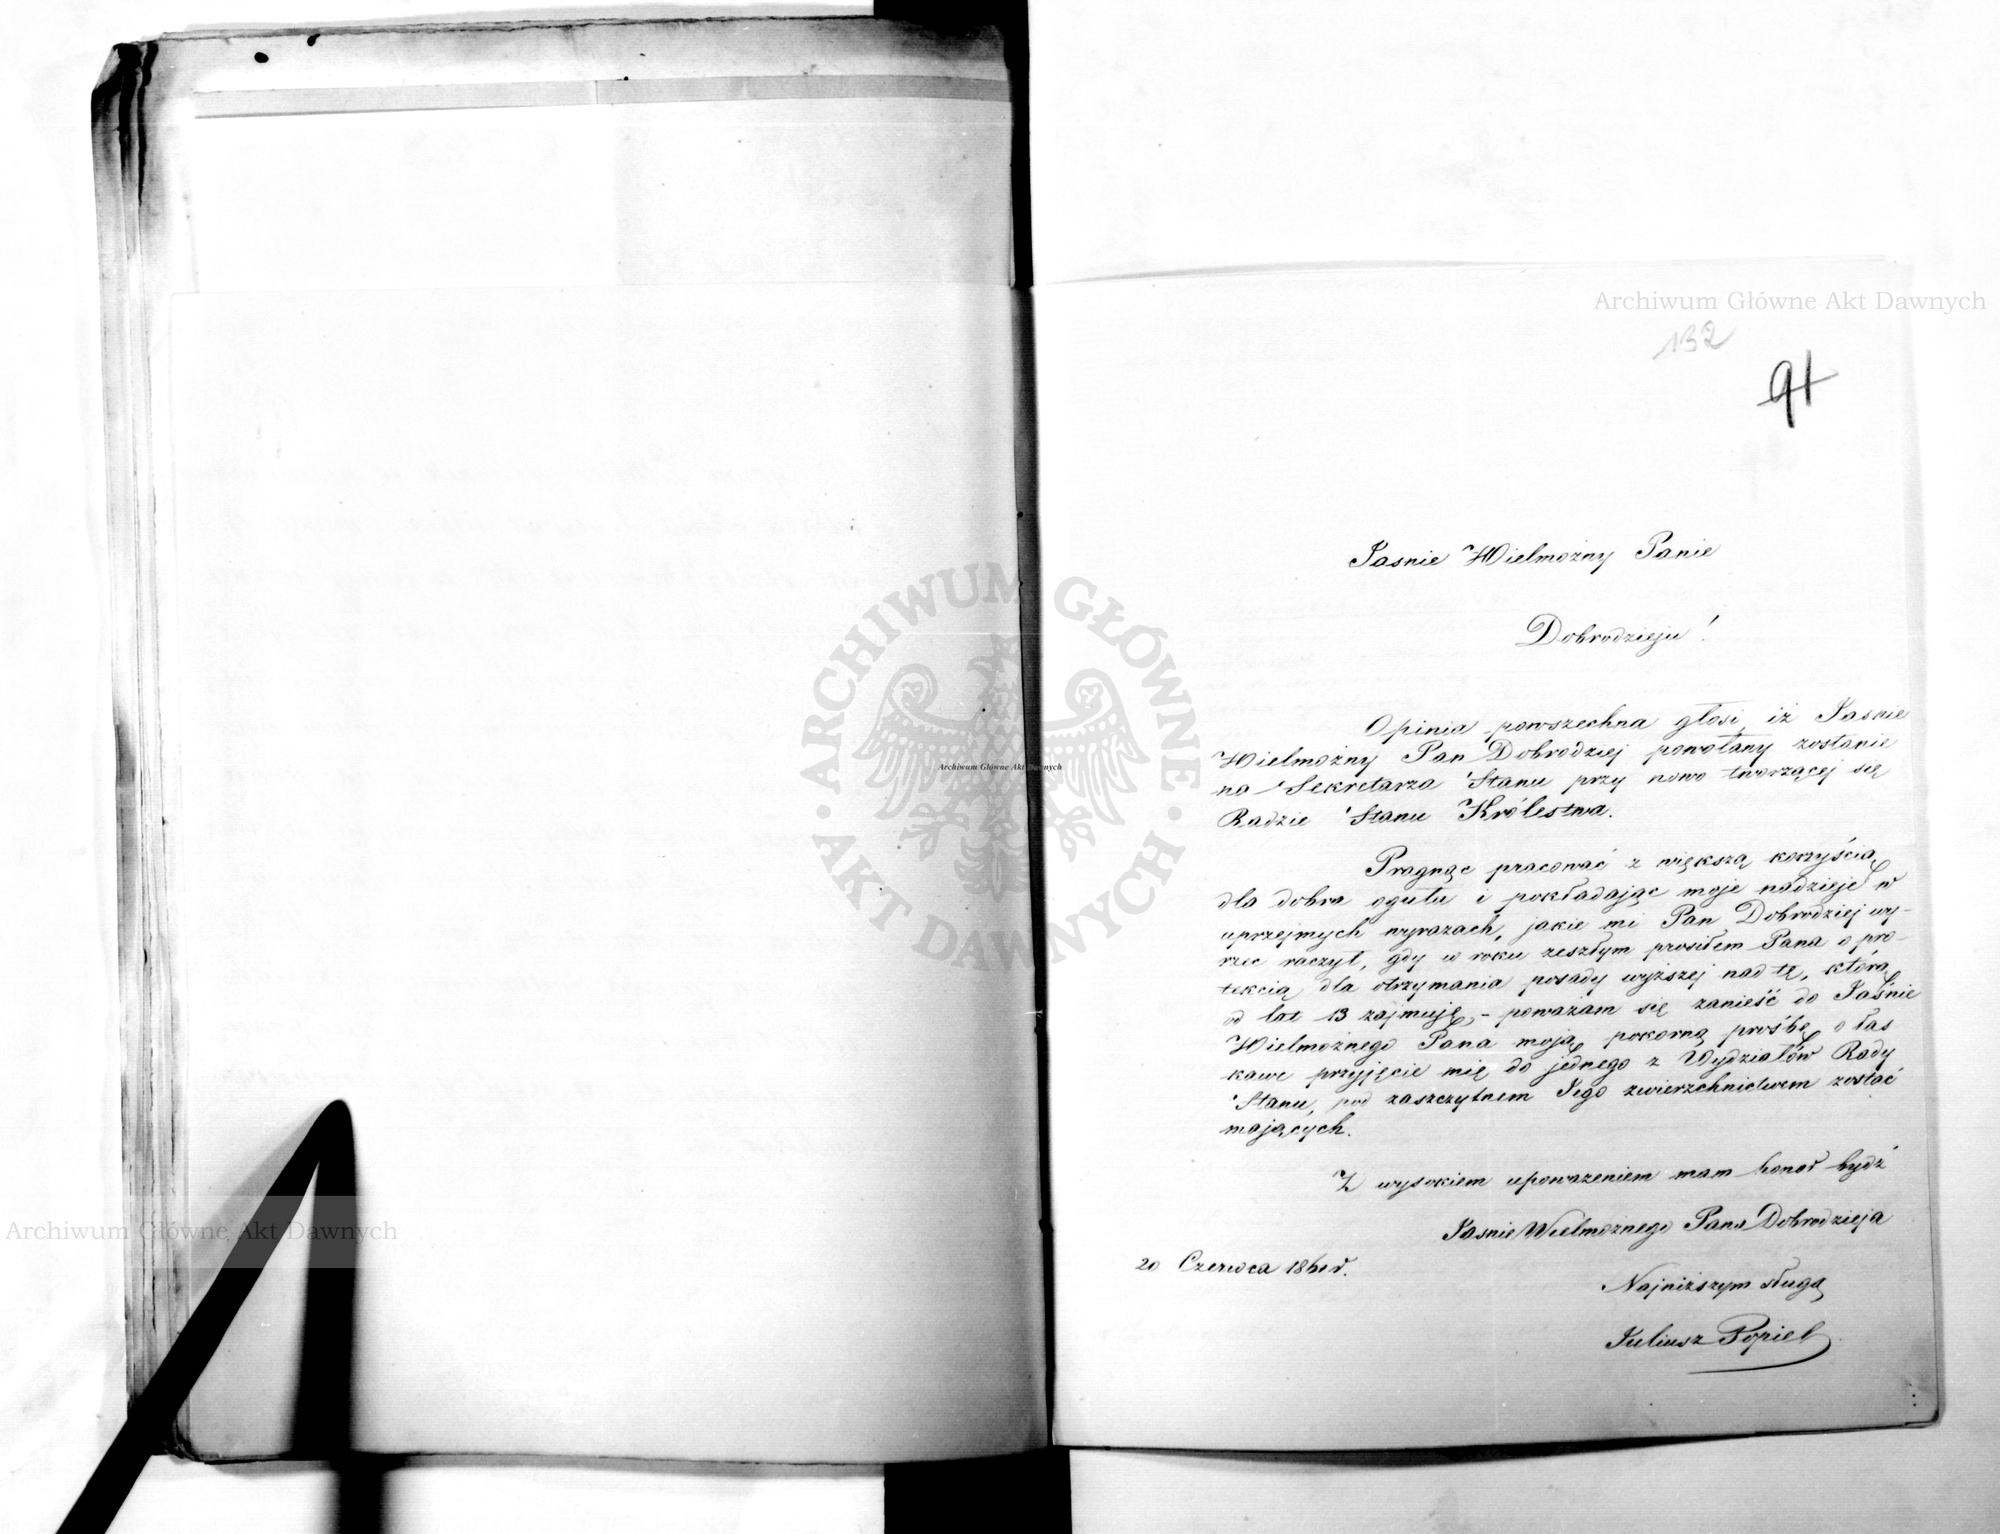 Archiwum Główne Akt Dawnych
132
91
Jasnie Wielmożny Panie
Dobrodzieju!
Opinia powszechna głosi, iż Jasnie
Wielmożny Pan Dobrodziej powołany zostanie
na Sekretarza Stanu przy nowo tworzącej się
Radzie Stanu Królestwa.
Pragnąc pracować z większą korzyścią
dla dobra ogułu i pokładając moje nadzieje w
uprzejmych wyrazach, jakie mi Pan Dobrodziej wy-
rzec raczył, gdy w roku zeszłym prosiłem Pana o pro-
tekcią dla otrzymania posady wyższej nad tę, którą
od lat 13 zajmuję, - poważam się zanieść do Jaśnie
Wielmożnego Pana moją pokorną prośbę o łas
kawe przyjęcie mię do jednego z Wydziałów Rady
Stanu, pod zaszczytnem Jego zwierzchnictwem zostać
mających.
Z wysokiem upoważeniem mam honor bydź
Jasnie Wielmożnego Pana Dobrodzieja
20 Czerwca 1861 r.
Najniższym sługą
Juliusz Popiel
ARCHIWUM GŁÓWNE
AKT DAWNYCH
Archiwum Główne Akt Dawnych
Archiwum Główne Akt Dawnych